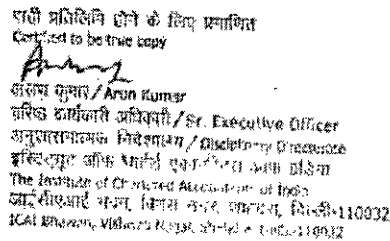 सही प्रतिलिपि होने के लिए प्रमाणित
Certified to be true copy
अरुण कुमार / Arun Kumar
वरिष्ठ कार्यकारी अधिकारी / Sr. Executive Officer
अनुशासनात्मक निदेशालय / Disciplinary Directorate
इंस्टिट्यूट ऑफ चार्टर्ड एकाउंटेंट्स ऑफ इंडिया
The Institute of Chartered Accountants of India
आईसीएआई भवन, विश्वास नगर, शाहदरा, दिल्ली-110032
ICAI Bhawan, Vishwas Nagar, Shahdra, Delhi-110032